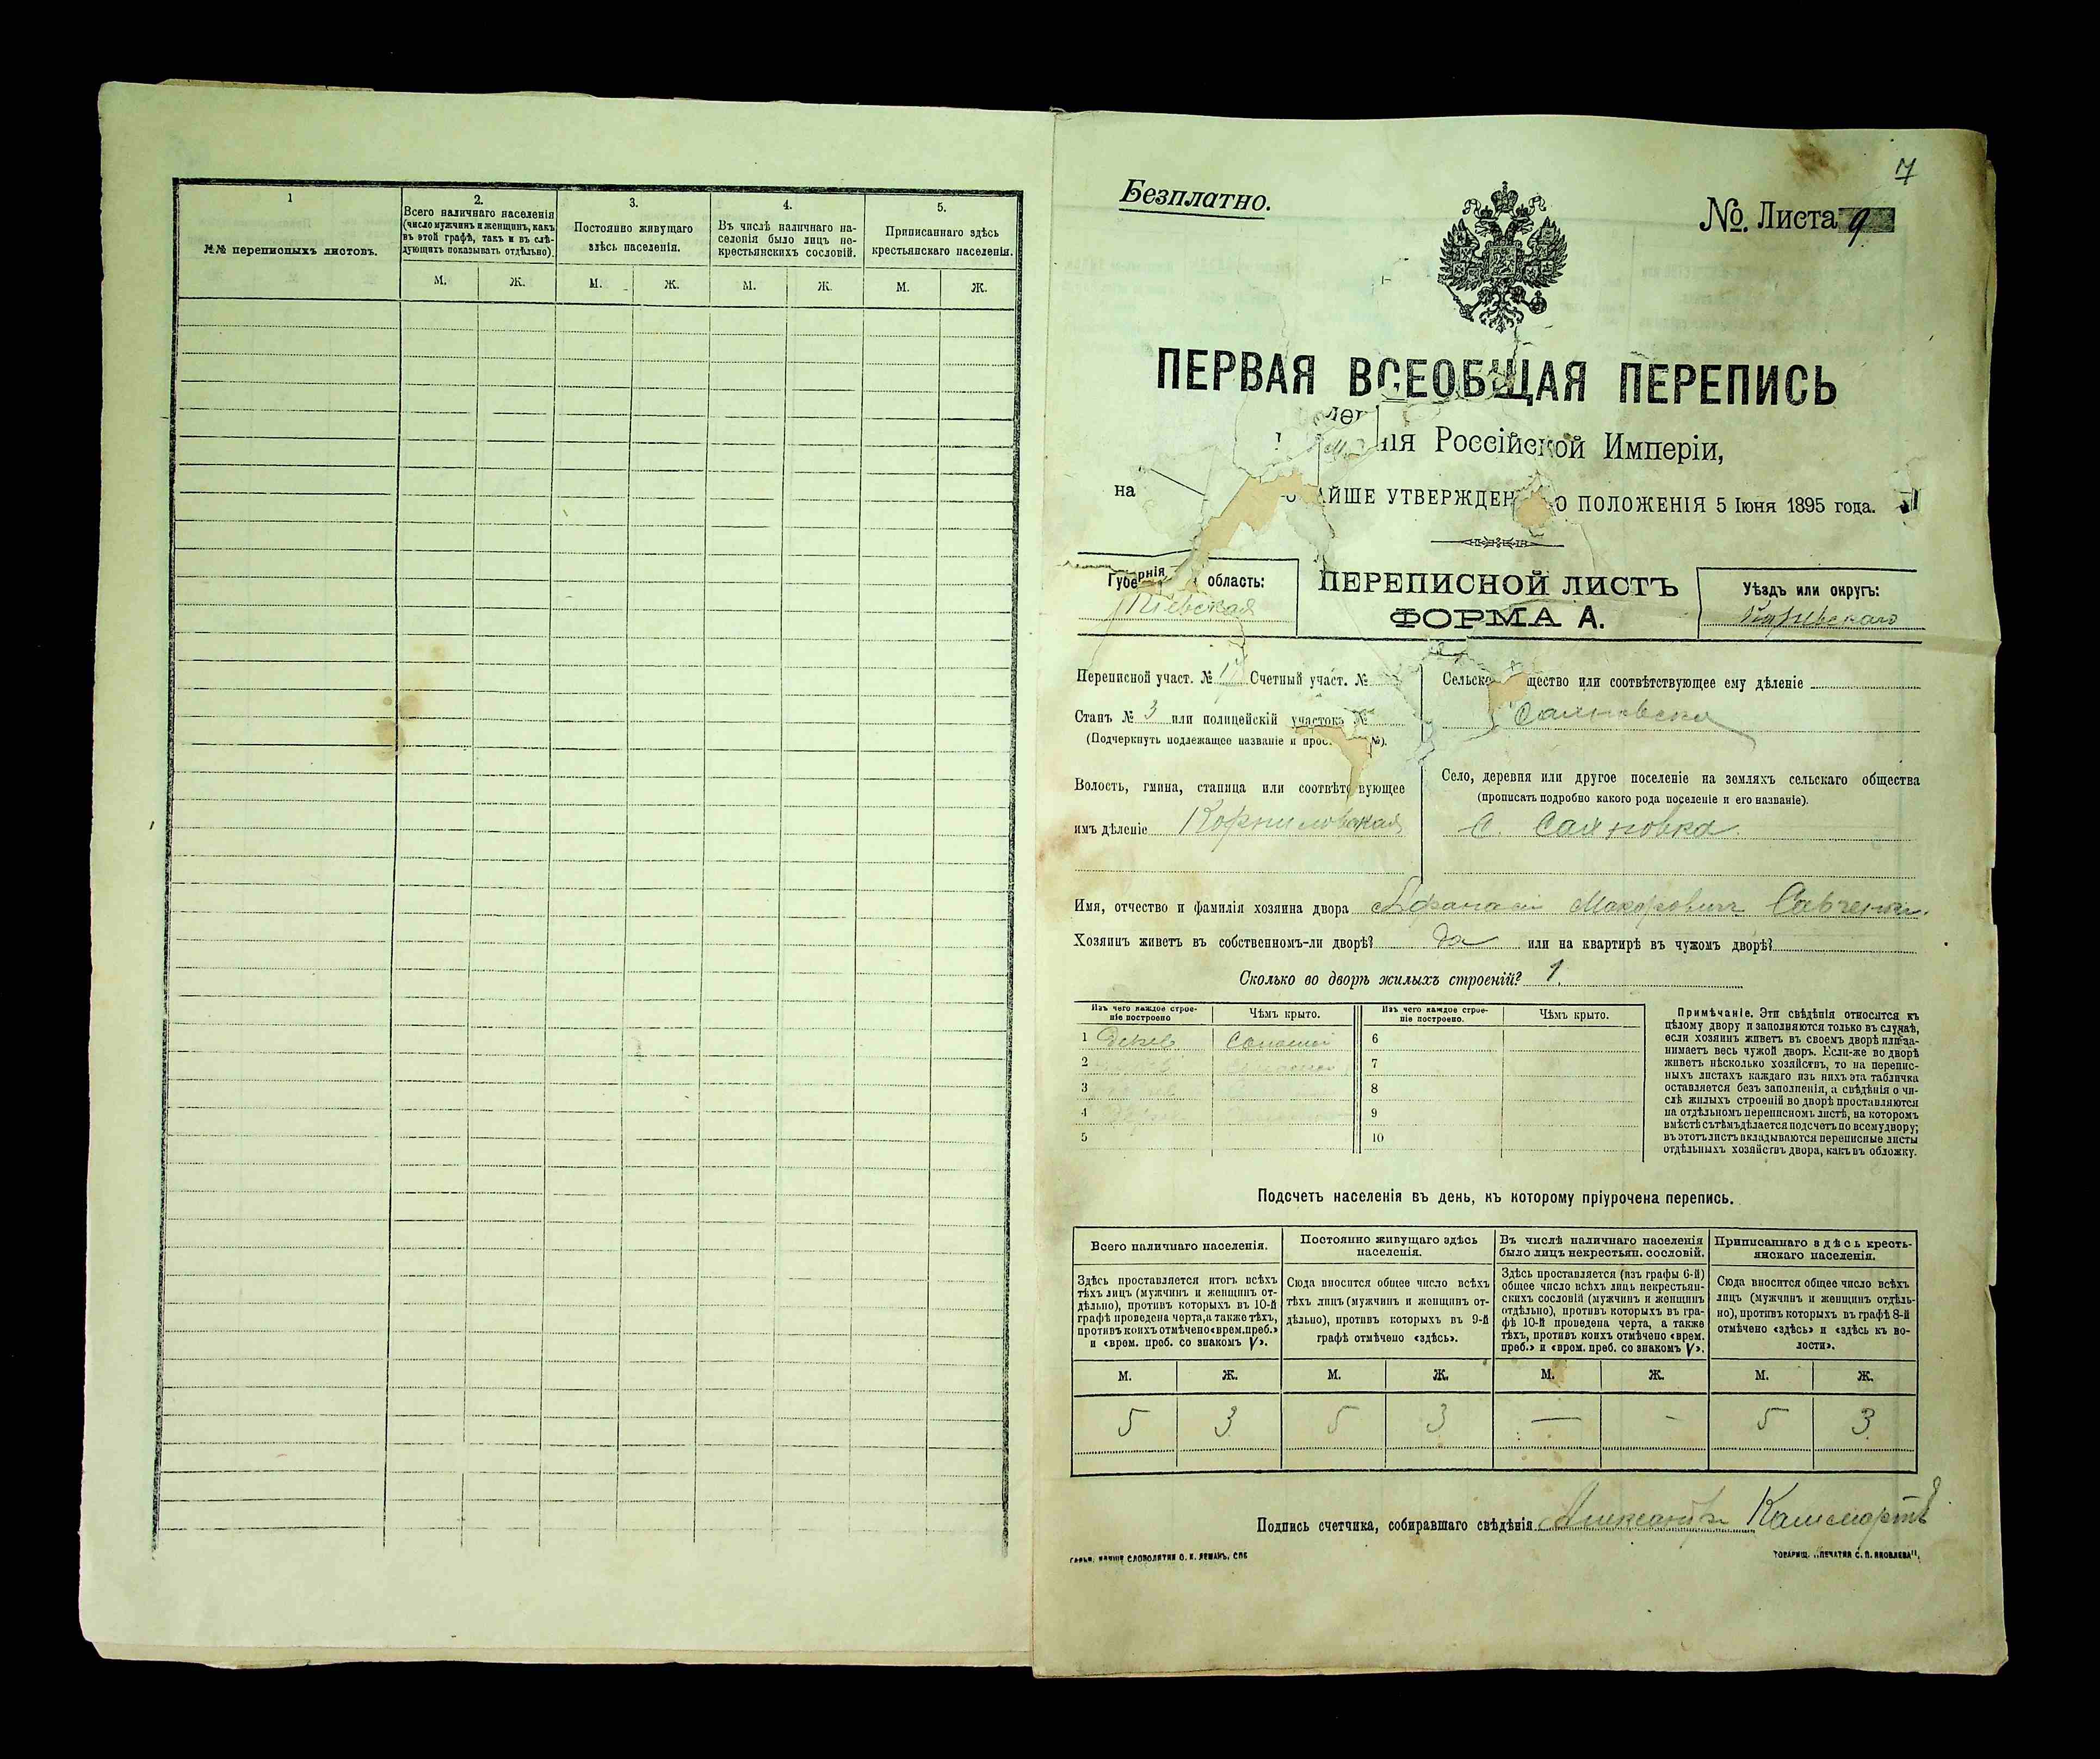 1
№№ переписныхъ листовъ.
2.
Всего наличнаго населенія
(число мужчинъ и женщинъ, какъ
въ этой графѣ, такъ и въ слѣ-
дующихъ показывать отдѣльно).
3.
Постоянно живущаго
здѣсь населенія.
4.
Въ числѣ наличнаго на-
селенія было лицъ не-
крестьянскихъ сословій.
5.
Приписаннаго здѣсь
крестьянскаго населенія.
М. Ж. М. Ж. М. Ж. М. Ж.
7
Безплатно.
№. Листа 9
ПЕРВАЯ ВСЕОБЩАЯ ПЕРЕПИСЬ
нія Россійской Имперіи,
на АЙШЕ УТВЕРЖДЕН О ПОЛОЖЕНІЯ 5 Іюня 1895 года.
Губернія область:
Кіевская
ПЕРЕПИСНОЙ ЛИСТЪ
ФОРМА А.
Уѣздъ или округъ:
Каневскаго
Переписной участ. № Счетный участ. №
Станъ № 3 или полицейскій участокъ №
(Подчеркнуть подлежащее названіе и прос №).
Волость, гмина, станица или соотвѣтствующее
имъ дѣленіе Корниловская
Сельско щество или соотвѣтствующее ему дѣленіе
Село, деревня или другое поселеніе на земляхъ сельскаго общества
(прописать подробно какого рода поселеніе и его названіе).
С. Саяновка.
Имя, отчество и фамилія хозяина двора Афанасій Макаровичъ Савченко.
Хозяинъ живетъ въ собственномъ-ли дворѣ? да или на квартирѣ въ чужомъ дворѣ?
Сколько во дворѣ жилыхъ строеній? 1.
Изъ чего каждое строе-
ніе построено
Чѣмъ крыто.
Изъ чего каждое строе-
ніе построено.
Чѣмъ крыто.
1 Дерев Соломой 6
2 7
3 8
4 9
5 10
Примѣчаніе. Эти свѣдѣнія относятся къ
цѣлому двору и заполняются только въ случаѣ,
если хозяинъ живетъ въ своемъ дворѣ или за-
нимаетъ весь чужой дворъ. Если-же во дворѣ
живетъ нѣсколько хозяйствъ, то на перепис-
ныхъ листахъ каждаго изъ нихъ эта табличка
оставляется безъ заполненія, а свѣдѣнія о чи-
слѣ жилыхъ строеній во дворѣ проставляются
на отдѣльномъ переписномъ листѣ, на которомъ
вмѣстѣ съ тѣмъ дѣлается подсчетъ по всему двору;
въ этотъ листъ вкладываются переписные листы
отдѣльныхъ хозяйствъ двора, какъ въ обложку.
Подсчетъ населенія въ день, къ которому пріурочена перепись.
Всего наличнаго населенія.
Постоянно живущаго здѣсь
населенія.
Въ числѣ наличнаго населенія
было лицъ некрестьян. сословій.
Приписаннаго здѣсь кресть-
янскаго населенія.
Здѣсь проставляется итогъ всѣхъ
тѣхъ лицъ (мужчинъ и женщинъ от-
дѣльно), противъ которыхъ въ 10-й
графѣ проведена черта, а также тѣхъ,
противъ коихъ отмѣчено «врем. преб.»
и «врем. преб. со знакомъ V».
Сюда вносится общее число всѣхъ
тѣхъ лицъ (мужчинъ и женщинъ от-
дѣльно), противъ которыхъ въ 9-й
графѣ отмѣчено «здѣсь».
Здѣсь проставляется (изъ графы 6-й)
общее число всѣхъ лицъ некрестьян-
скихъ сословій (мужчинъ и женщинъ
отдѣльно), противъ которыхъ въ гра-
фѣ 10-й проведена черта, а также
тѣхъ, противъ коихъ отмѣчено «врем.
преб.» и «врем. преб. со знакомъ V».
Сюда вносится общее число всѣхъ
лицъ (мужчинъ и женщинъ отдѣль-
но), противъ которыхъ въ графѣ 8-й
отмѣчено «здѣсь» и «здѣсь къ во-
лости».
М. Ж. М. Ж. М. Ж. М. Ж.
5 3 5 3 — - 5 3
Подпись счетчика, собиравшаго свѣдѣнія Александръ
СЛОВОЛИТНИ О. И. ЛЕМАНЪ, СПБ
ТОВАРИЩ. „ПЕЧАТНЯ С. П. ЯКОВЛЕВА".